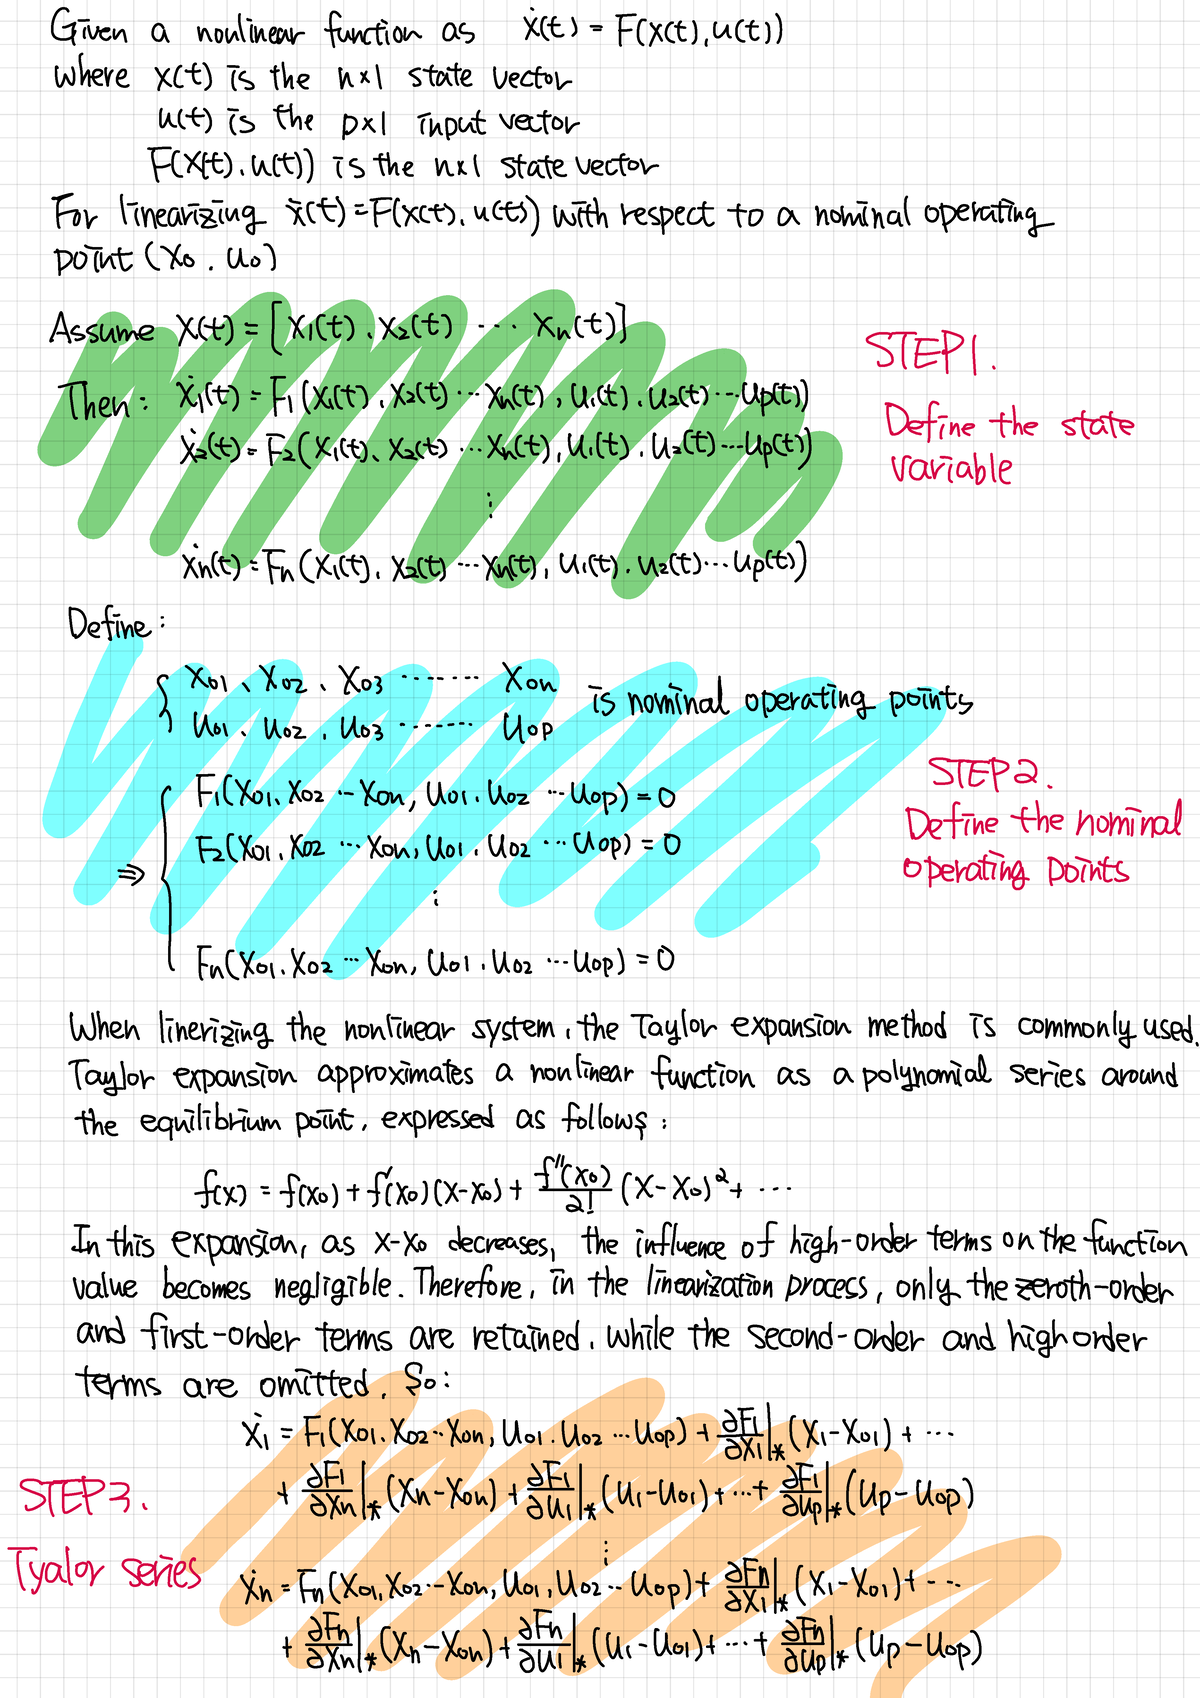 Given a nonlinear function as ẋ(t) = F(x(t), u(t))
where x(t) is the n×1 state vector
u(t) is the p×1 input vector
F(x(t), u(t)) is the n×1 state vector
For linearizing ẋ(t) = F(x(t), u(t)) with respect to a nominal operating
point (x₀, u₀)
Assume x(t) = [x₁(t), x₂(t) ··· xₙ(t)]
STEP1.
Then: ẋ₁(t) = F₁(x₁(t), x₂(t) ··· xₙ(t), u₁(t), u₂(t) ··· up(t))
Define the state
ẋ₂(t) = F₂(x₁(t), x₂(t) ··· xₙ(t), u₁(t), u₂(t) ··· up(t))
variable
⋮
ẋₙ(t) = Fₙ(x₁(t), x₂(t) ··· xₙ(t), u₁(t), u₂(t) ··· up(t))
Define:
{ x₀₁、x₀₂、x₀₃ ······· x₀ₙ
is nominal operating points
u₀₁、u₀₂, u₀₃ ······· u₀p
STEP2.
F₁(x₀₁, x₀₂ ··· x₀ₙ, u₀₁, u₀₂ ··· u₀p) = 0
Define the nominal
F₂(x₀₁, x₀₂ ··· x₀ₙ, u₀₁, u₀₂ ··· u₀p) = 0
operating points
⇒ {
⋮
Fₙ(x₀₁, x₀₂ ··· x₀ₙ, u₀₁, u₀₂ ··· u₀p) = 0
When linerizing the nonlinear system, the Taylor expansion method is commonly used.
Taylor expansion approximates a nonlinear function as a polynomial series around
the equilibrium point, expressed as follows:
f(x) = f(x₀) + f'(x₀)(x-x₀) + f''(x₀)/2! (x-x₀)² + ···
In this expansion, as x-x₀ decreases, the influence of high-order terms on the function
value becomes negligible. Therefore, in the linearization process, only the zeroth-order
and first-order terms are retained, while the second-order and high order
terms are omitted. So:
ẋ₁ = F₁(x₀₁, x₀₂ ··· x₀ₙ, u₀₁, u₀₂ ··· u₀p) + ∂F₁/∂x₁|* (x₁-x₀₁) + ···
STEP3.
+ ∂F₁/∂xₙ|* (xₙ-x₀ₙ) + ∂F₁/∂u₁|* (u₁-u₀₁) + ··· + ∂F₁/∂up|* (up-u₀p)
⋮
Tyalor series
ẋₙ = Fₙ(x₀₁, x₀₂ ··· x₀ₙ, u₀₁, u₀₂ ·· u₀p) + ∂Fₙ/∂x₁|* (x₁-x₀₁) + ···
+ ∂Fₙ/∂xₙ|* (xₙ-x₀ₙ) + ∂Fₙ/∂u₁|* (u₁-u₀₁) + ··· + ∂Fₙ/∂up|* (up-u₀p)